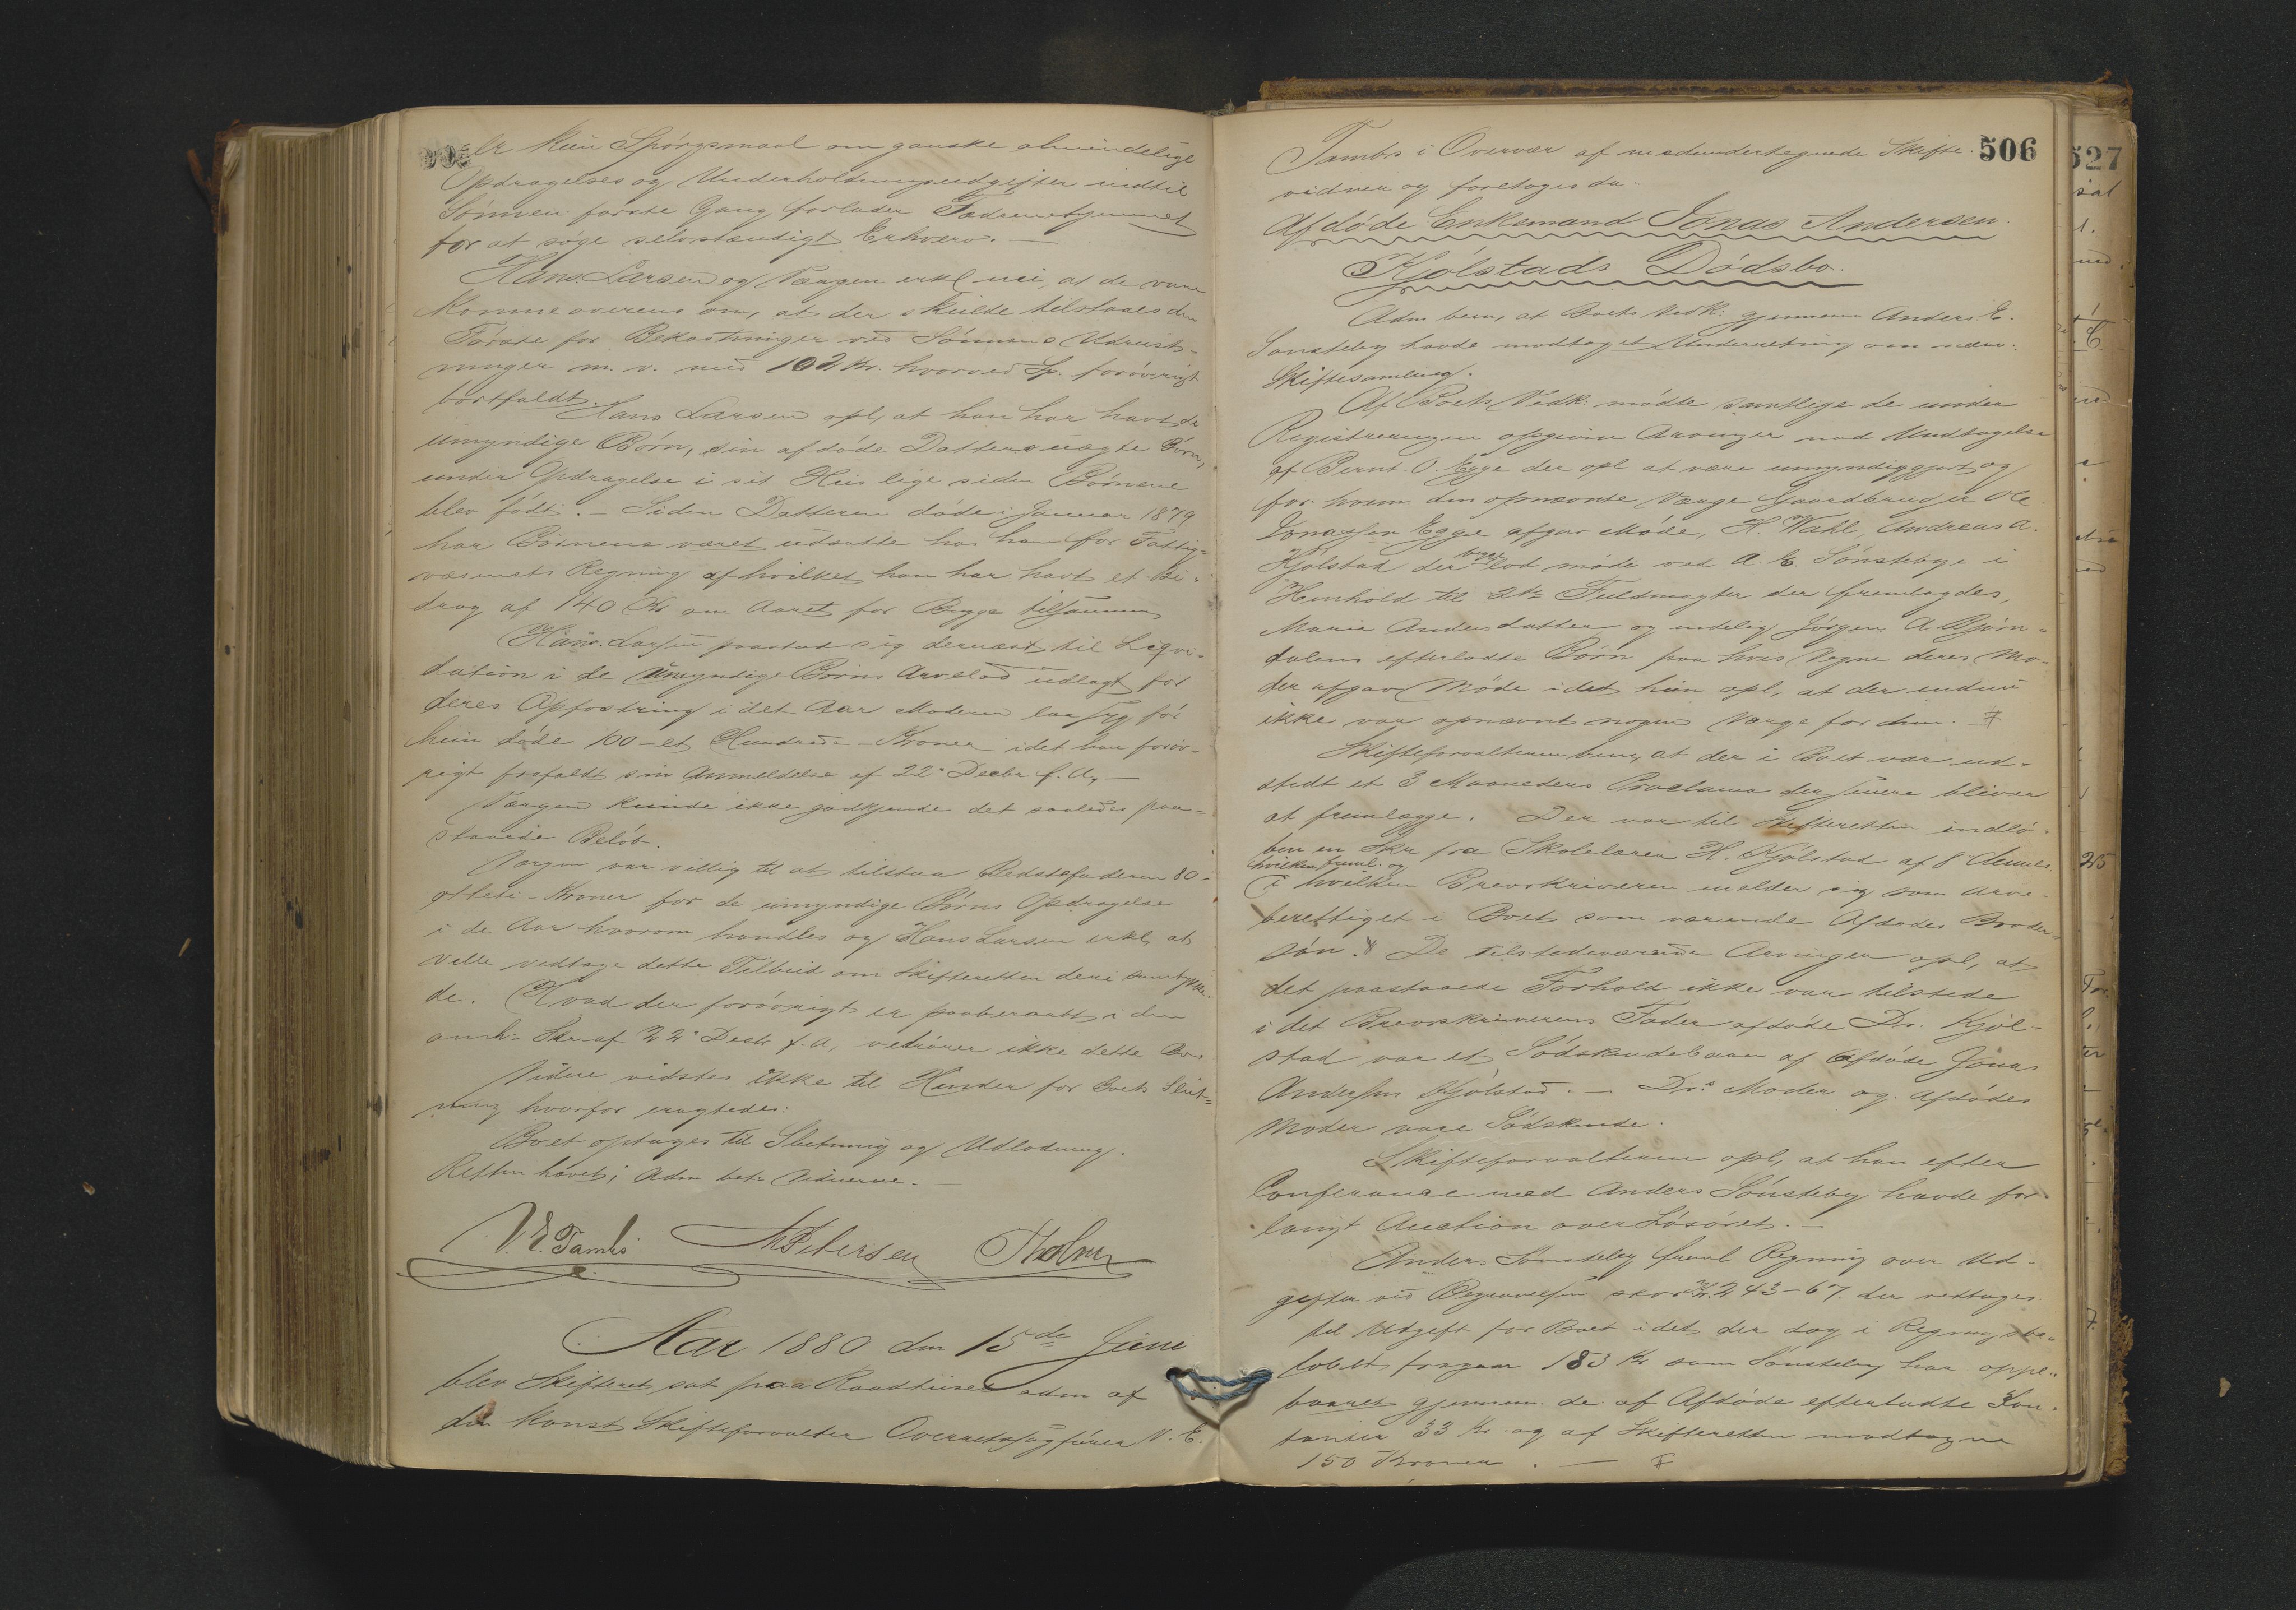 er kun Spörgsmaal om ganske almindelige
Opdragelses og Underholdningsudgifter indtil
Sönnen förste Gang forlader Fædrenehjemmet
for at söge selvstændigt Erhverv. —
Hans Larsen og Værgen erkl. nu, at de vare
komne overens om, at der skulde tilstaaes den
Förste for Bekostninger ved Sönnens Udrust-
ninger m. v. med 102 Kr. hvorved Sp. forövrigt
bortfaldt.
Hans Larsen opl, at han har havt de
umyndige Börn, sin afdöde Datters uægte Börn,
under Opdragelse i sit Huus lige siden Börnene
blev födt. — Siden Datteren döde i Januar 1879
har Börnene været udsatte hos ham for Fattig-
væsenets Regning af hvilket han har havt et Bi-
drag af 140 Kr om Aaret for Begge tilsammen
Hans Larsen paastod sig dernæst til Liqvi-
dation i de umyndige Börns Arvelod udlagt for
deres Opfostring i det Aar Moderen laa syg för
hun döde 100 - et Hundrede - Kroner idet han foröv-
rigt frafaldt sin Anmeldelse af 22de Decbr f. A, —
Værgen kunde ikke godkjende det saaledes paa-
staaede Belöb.
Værgen var villig til at tilstaa Bedstefaderen 80 -
otteti - Kroner for de umyndige Börns Opdragelse
i de Aar hvorom handles og Hans Larsen erkl, at
ville vedtage dette Tilbud om Skifteretten deri samtykke-
de. Hvad der forövrigt er paaberaabt i den
omh. Skr. af 22de Decbr f. A, vedrörer ikke dette Bo.
Videre vidstes ikke til Hinder for Boets Slut-
ning hvorfor eragtedes:
Boet optages til Slutning og Udlodning.
Retten hævet; Adm bet. Vidnerne. —
V. E. Tambs Petersen Holm
Aar 1880 den 15de Juni
blev Skifteret sat paa Raadhuset adm af
den konst Skifteforvalter Overretssagförer V. E.
506
Tambs i Overvær af medundertegnede Skifte-
vidner og foretoges da:
Afdöde Enkemand Jonas Andersen
Kjölstads Dödsbo.
Adm bem, at Boets Vedk. gjennem Anders E.
Sönsteby havde modtaget Underretning om nærv.
Skiftesamling.
Af Boets Vedk. mödte samtlige de under
Registreringen opgivne Arvinger med Undtagelse
af Bernt O. Egge der opl at være umyndiggjort og
for hvem den opnævnte Værge Gaardbruger Ole
Jonassen Egge afgav Möde, H. Wahl, Andreas A.
Kjölstad der begge lod möde ved A. E. Sönsteby i
Henhold til 2de Fuldmagter der fremlagdes,
Marie Andersdatter og endelig Jörgen A. Björn-
dalens efterladte Börn paa hvis Vegne deres Mo-
der afgav Möde idet hun opl, at der endnu
ikke var opnævnt nogen Værge for dem. #
Skifteforvalteren bem, at der i Boet var ud-
stedt et 3 Maaneders Proclama der senere bliver
at fremlægge. Der var til Skifteretten indlö-
ben en Skr fra Skolelærer H. Kjölstad af 8 dennes
hvilken freml. og
i hvilken Brevskriveren melder sig som arve-
berettiget i Boet som værende Afdödes Broder-
sön. De tilstedeværende Arvinger opl, at
det paastaaede Forhold ikke var tilstede
i det Brevskriverens Fader afdöde Dr. Kjöl-
stad var et Södskendebarn af Afdöde Jonas
Andersen Kjölstad. — Dr.s Moder og Afdödes
Moder vare Södskende.
Skifteforvalteren opl, at han efter
Conferance med Anders Sönsteby havde for-
langt Auction over Lösöret. —
Anders Sönsteby freml Regning over Ud-
gifter ved Begravelsen stor Kr. 243-67. der vedtages
til Udgift for Boet idet der dog i Regningsbe-
löbet fragaar 183 Kr som Sönsteby har oppe-
baaret gjennem de af Afdöde efterladte Kon-
tanter 33 Kr. og af Skifteretten modtagne
150 Kroner. — #
527
25